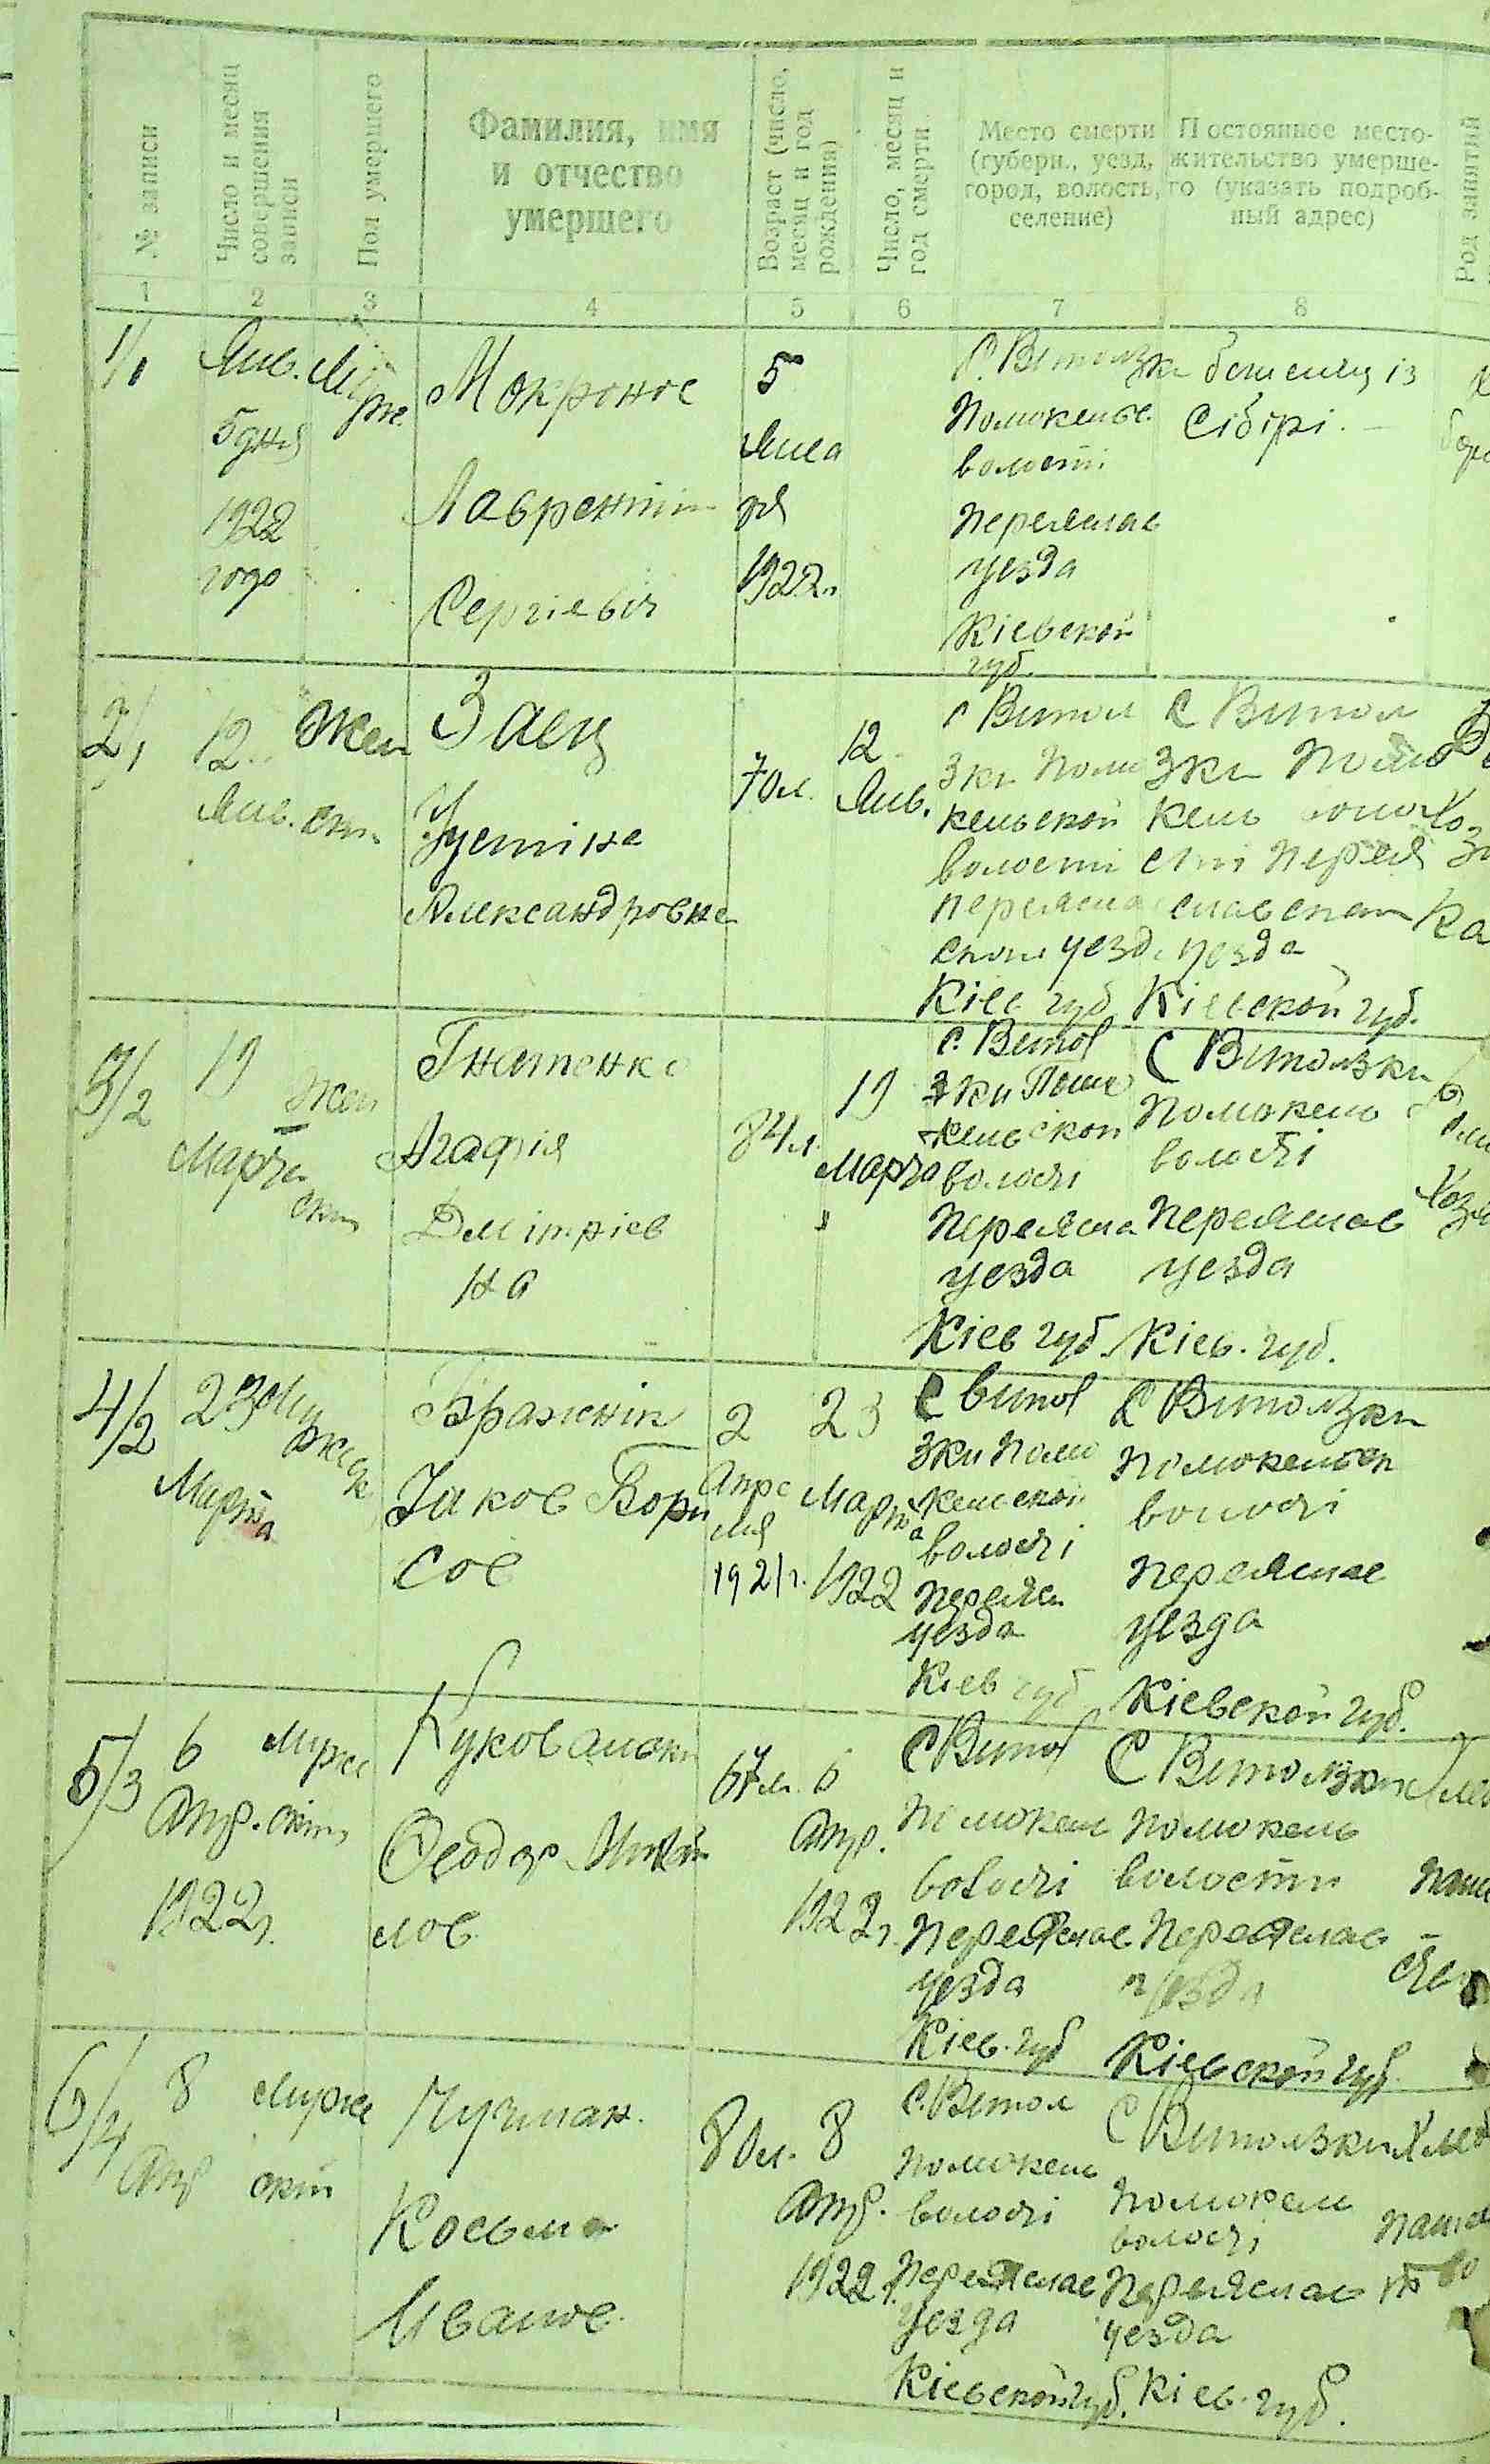 № записи
Число и месяц
совершения
записи
Пол умершего
Фамилия, имя
и отчество
умершего
Возраст (число,
месяц и год
рождения)
Число, месяц и
год смерти
Место смерти
(губерн., уезд,
город, волость,
селение)
Постоянное место-
жительство умерше-
го (указать подроб-
ный адрес)
Род занятий
1
2
3
4
5
6
7
8
1/1
Янв.
5 дня
1922
года
Муж.
Мокронос
Лаврентій
Сергіевіч
5
Янва
ря
1922 г.
С. Витолзки
Помокельс.
волості
Переяслав
уезда
Кіевской
губ.
беженец із
Сібірі.
2/1
12
Янв.
Жен
ск.
Заец
Устіна
Александровна
70 л.
12
Янв.
с Витол
зки Помо
кельской
волості
Перяслав
ского уезда
Кіев губ
С Витол
зки Помо
кель воло
сті Перея
славского
уезда
Кіевской губ.
3/2
19
Марта
Жен
ск
Гнатенко
Агафія
Дмітріев
на
84 л.
19
Марта
с. Витол
зки Помо
кельской
волості
Переясла
уезда
Кіев губ.
С Витолзки
Помокель
волості
Переяслав
уезда
Кіев. губ.
4/2
23
Марта
Муж
Бражнік
Іаков Бори
сов
2
Апре
ля
1921 г.
23
Марта
1922
С Витол
зки Помо
кельской
волості
Переяс
уезда
Кіев губ
С Витолзки
Помокельск
волості
Переяслав
уезда
Кіевской губ.
5/3
6
Апр.
1922 г.
Мужс
скій
Феодор Михай
лов.
67 л.
6
Апр.
1922 г.
С Витол
Помокель
волості
Переяслав
уезда
Кіев. губ
С Витолзки
Помокель
волости
Переяслав
уезда
Кіевской губ.
6/4
8
Апр
Мужс
скій
Косьма
Иванов.
80 л.
8
Апр.
1922 г.
С. Витол
Помокель
волості
Переяслав
уезда
Кіевской губ.
С Витолзки
Помокель
волості
Переяслав
уезда
Кіев. губ.